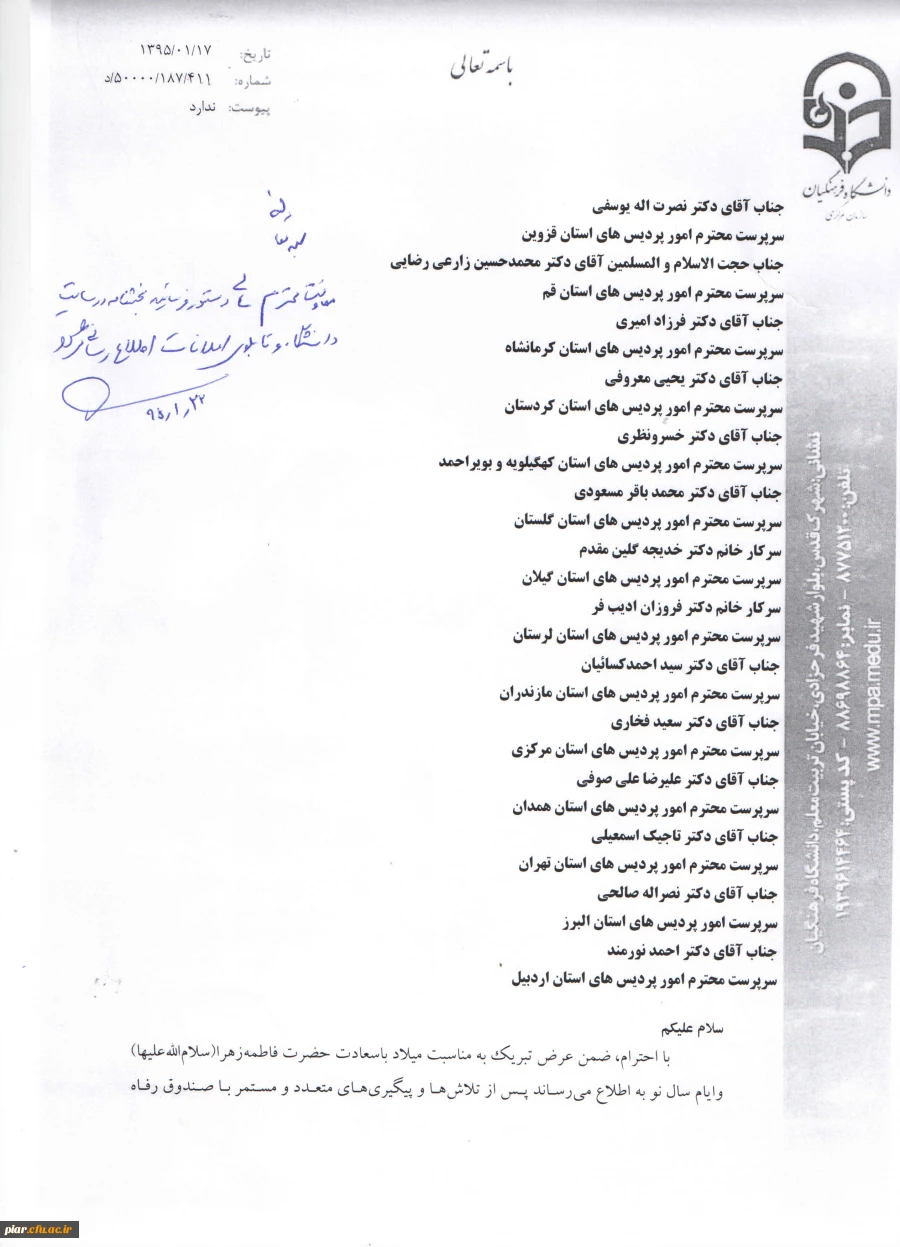 باسمه تعالی
تاریخ: ۱۳۹۵/۰۱/۱۷
شماره: ۵۰۰۰۰/۱۸۷/۴۱۱/د
پیوست: ندارد
دانشگاه فرهنگیان
سازمان مرکزی
جناب آقای دکتر نصرت اله یوسفی
سرپرست محترم امور پردیس های استان قزوین
جناب حجت الاسلام و المسلمین آقای دکتر محمدحسین زارعی رضایی
سرپرست محترم امور پردیس های استان قم
جناب آقای دکتر فرزاد امیری
سرپرست محترم امور پردیس های استان کرمانشاه
جناب آقای دکتر یحیی معروفی
سرپرست محترم امور پردیس های استان کردستان
جناب آقای دکتر خسرونظری
سرپرست محترم امور پردیس های استان کهگیلویه و بویراحمد
جناب آقای دکتر محمد باقر مسعودی
سرپرست محترم امور پردیس های استان گلستان
سرکار خانم دکتر خدیجه گلین مقدم
سرپرست محترم امور پردیس های استان گیلان
سرکار خانم دکتر فروزان ادیب فر
سرپرست محترم امور پردیس های استان لرستان
جناب آقای دکتر سید احمدکسائیان
سرپرست محترم امور پردیس های استان مازندران
جناب آقای دکتر سعید فخاری
سرپرست محترم امور پردیس های استان مرکزی
جناب آقای دکتر علیرضا علی صوفی
سرپرست محترم امور پردیس های استان همدان
جناب آقای دکتر تاجیک اسمعیلی
سرپرست محترم امور پردیس های استان تهران
جناب آقای دکتر نصراله صالحی
سرپرست امور پردیس های استان البرز
جناب آقای دکتر احمد نورمند
سرپرست محترم امور پردیس های استان اردبیل
سلام علیکم
با احترام، ضمن عرض تبریک به مناسبت میلاد باسعادت حضرت فاطمه‌زهرا(سلام‌الله‌علیها)
وایام سال نو به اطلاع می‌رساند پس از تلاش‌ها و پیگیری‌های متعدد و مستمر با صندوق رفاه
محترم دستور فرمایید بخشنامه در سایت
دانشگاه و تابلوی اعلانات اطلاع رسانی
۹۵/۱/۲۲
نشانی:شهرک‌قدس،بلوار شهید فرحزادی،خیابان تربیت معلم،دانشگاه فرهنگیان
تلفن:۸۷۷۵۱۲۰۰ - نمابر:۸۸۶۹۸۸۶۴ - کد پستی:۱۹۳۹۶۱۴۴۶۴
www.mpa.medu.ir
piar.cfu.ac.ir